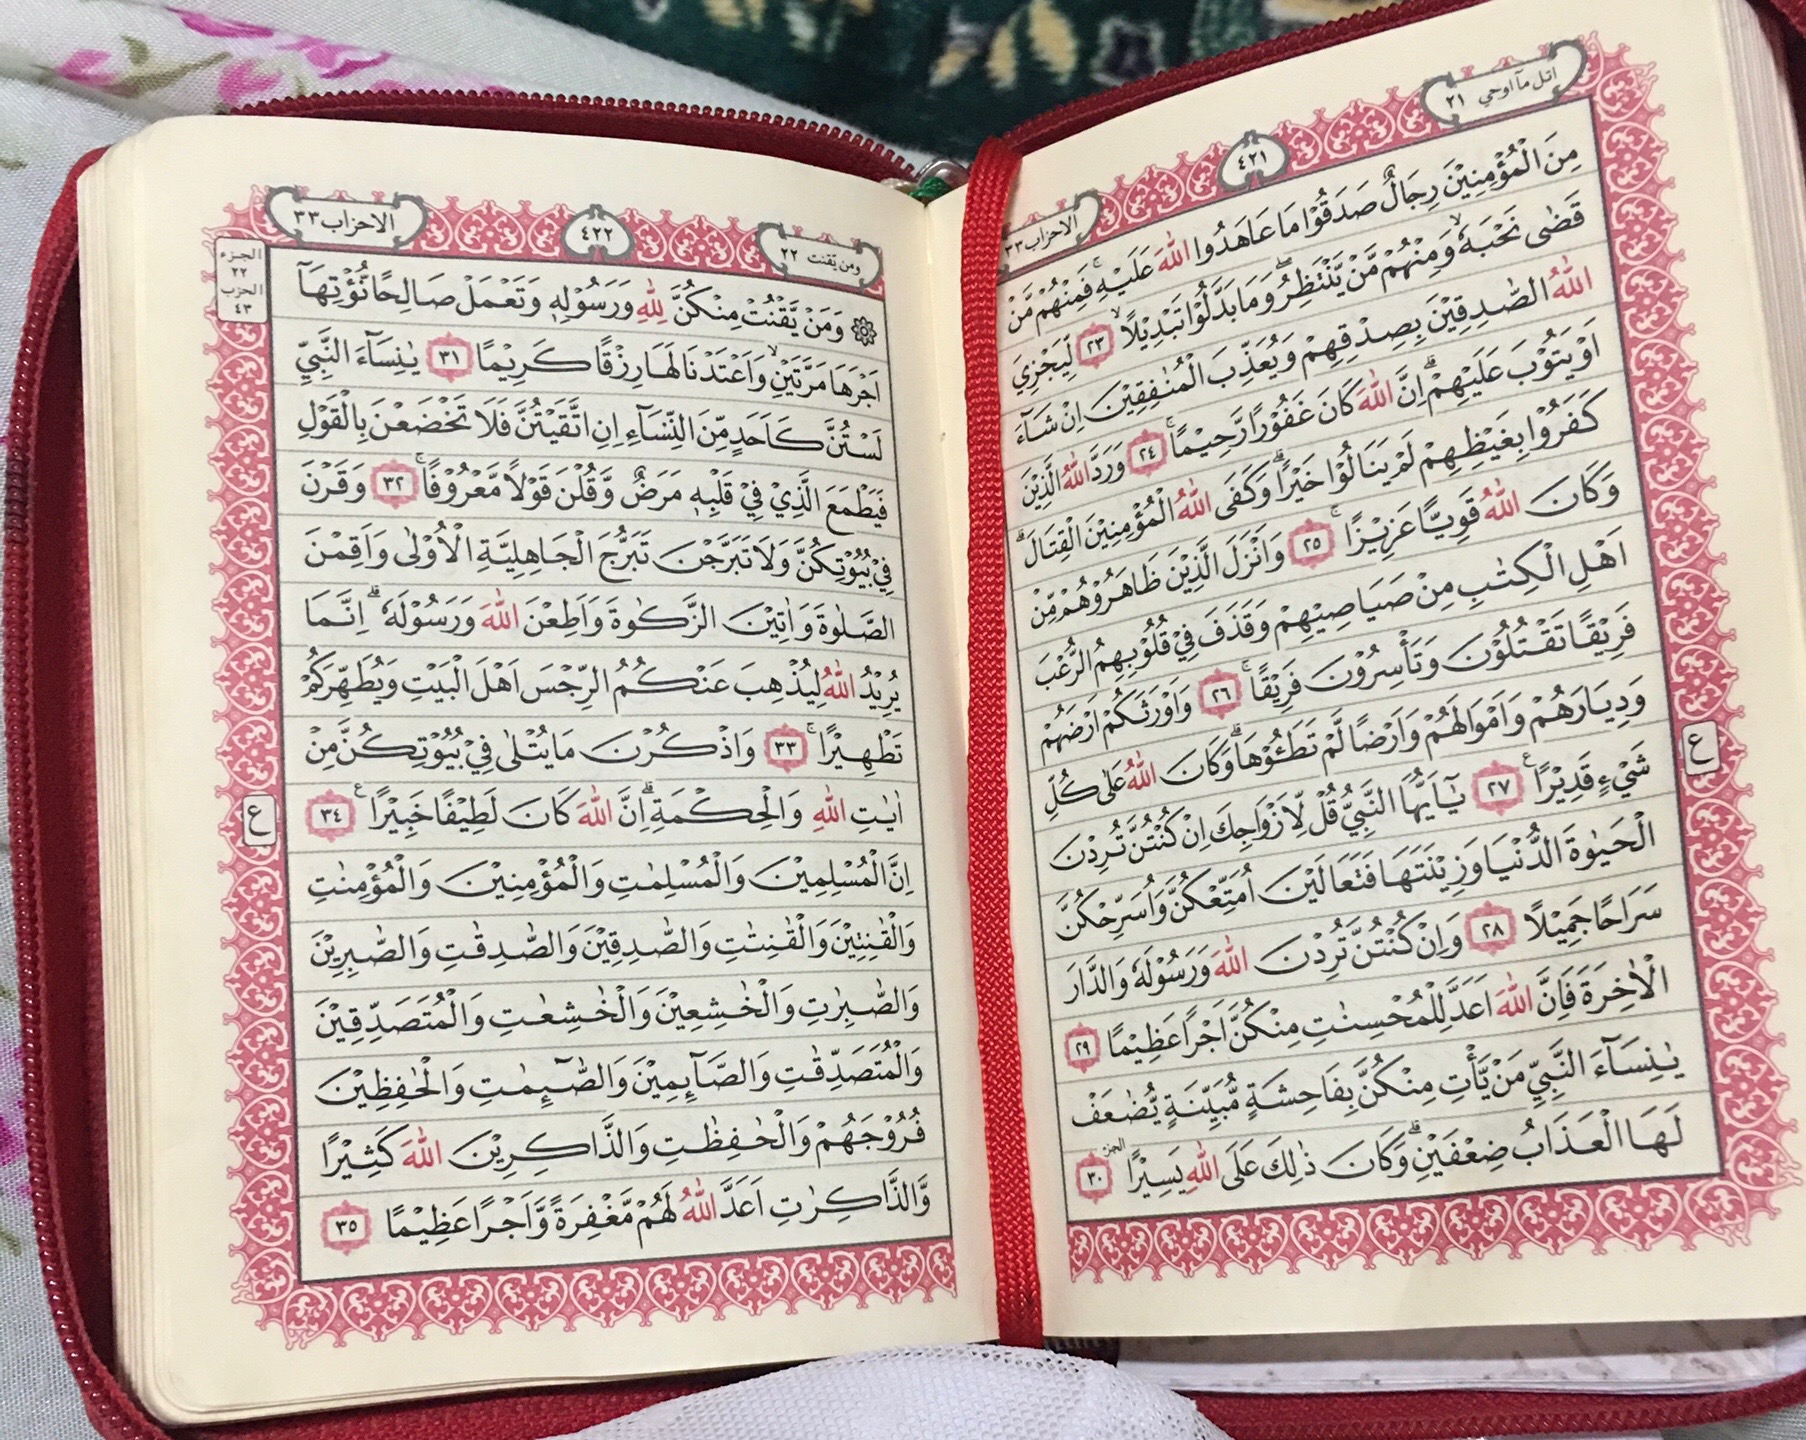 اتل مآاوحي ٢١
٤٢١
الاحزاب ٣٣
مِنَ الْمُؤْمِنِيْنَ رِجَالٌ صَدَقُوْا مَا عَاهَدُوا اللّٰهَ عَلَيْهِ ۚ فَمِنْهُمْ مَّنْ
قَضٰى نَحْبَهٗ ۙ وَمِنْهُمْ مَّنْ يَّنْتَظِرُ ۖ وَمَا بَدَّلُوْا تَبْدِيْلًا ۙ ٢٣ لِّيَجْزِيَ
اللّٰهُ الصّٰدِقِيْنَ بِصِدْقِهِمْ وَيُعَذِّبَ الْمُنٰفِقِيْنَ اِنْ شَاۤءَ
اَوْ يَتُوْبَ عَلَيْهِمْ ۗ اِنَّ اللّٰهَ كَانَ غَفُوْرًا رَّحِيْمًا ۚ ٢٤ وَرَدَّ اللّٰهُ الَّذِيْنَ
كَفَرُوْا بِغَيْظِهِمْ لَمْ يَنَالُوْا خَيْرًا ۗ وَكَفَى اللّٰهُ الْمُؤْمِنِيْنَ الْقِتَالَ ۗ
وَكَانَ اللّٰهُ قَوِيًّا عَزِيْزًا ۚ ٢٥ وَاَنْزَلَ الَّذِيْنَ ظَاهَرُوْهُمْ مِّنْ
اَهْلِ الْكِتٰبِ مِنْ صَيَاصِيْهِمْ وَقَذَفَ فِيْ قُلُوْبِهِمُ الرُّعْبَ
فَرِيْقًا تَقْتُلُوْنَ وَتَأْسِرُوْنَ فَرِيْقًا ۚ ٢٦ وَاَوْرَثَكُمْ اَرْضَهُمْ
وَدِيَارَهُمْ وَاَمْوَالَهُمْ وَاَرْضًا لَّمْ تَطَـُٔوْهَا ۗ وَكَانَ اللّٰهُ عَلٰى كُلِّ
شَيْءٍ قَدِيْرًا ࣖ ٢٧ يٰٓاَيُّهَا النَّبِيُّ قُلْ لِّاَزْوَاجِكَ اِنْ كُنْتُنَّ تُرِدْنَ
الْحَيٰوةَ الدُّنْيَا وَزِيْنَتَهَا فَتَعَالَيْنَ اُمَتِّعْكُنَّ وَاُسَرِّحْكُنَّ
سَرَاحًا جَمِيْلًا ٢٨ وَاِنْ كُنْتُنَّ تُرِدْنَ اللّٰهَ وَرَسُوْلَهٗ وَالدَّارَ
الْاٰخِرَةَ فَاِنَّ اللّٰهَ اَعَدَّ لِلْمُحْسِنٰتِ مِنْكُنَّ اَجْرًا عَظِيْمًا ٢٩
يٰنِسَاۤءَ النَّبِيِّ مَنْ يَّأْتِ مِنْكُنَّ بِفَاحِشَةٍ مُّبَيِّنَةٍ يُّضٰعَفْ
لَهَا الْعَذَابُ ضِعْفَيْنِ ۗ وَكَانَ ذٰلِكَ عَلَى اللّٰهِ يَسِيْرًا الجزء ٣٠
ع
ومن يّقنت ٢٢
٤٢٢
الاحزاب ٣٣
الجزء
٢٢
الحزب
٤٣
۞ وَمَنْ يَّقْنُتْ مِنْكُنَّ لِلّٰهِ وَرَسُوْلِهٖ وَتَعْمَلْ صَالِحًا نُّؤْتِهَآ
اَجْرَهَا مَرَّتَيْنِ ۙ وَاَعْتَدْنَا لَهَا رِزْقًا كَرِيْمًا ٣١ يٰنِسَاۤءَ النَّبِيِّ
لَسْتُنَّ كَاَحَدٍ مِّنَ النِّسَاۤءِ اِنِ اتَّقَيْتُنَّ فَلَا تَخْضَعْنَ بِالْقَوْلِ
فَيَطْمَعَ الَّذِيْ فِيْ قَلْبِهٖ مَرَضٌ وَّقُلْنَ قَوْلًا مَّعْرُوْفًا ۚ ٣٢ وَقَرْنَ
فِيْ بُيُوْتِكُنَّ وَلَا تَبَرَّجْنَ تَبَرُّجَ الْجَاهِلِيَّةِ الْاُوْلٰى وَاَقِمْنَ
الصَّلٰوةَ وَاٰتِيْنَ الزَّكٰوةَ وَاَطِعْنَ اللّٰهَ وَرَسُوْلَهٗ ۗ اِنَّمَا
يُرِيْدُ اللّٰهُ لِيُذْهِبَ عَنْكُمُ الرِّجْسَ اَهْلَ الْبَيْتِ وَيُطَهِّرَكُمْ
تَطْهِيْرًا ۚ ٣٣ وَاذْكُرْنَ مَا يُتْلٰى فِيْ بُيُوْتِكُنَّ مِنْ
اٰيٰتِ اللّٰهِ وَالْحِكْمَةِ ۗ اِنَّ اللّٰهَ كَانَ لَطِيْفًا خَبِيْرًا ࣖ ٣٤
ع
اِنَّ الْمُسْلِمِيْنَ وَالْمُسْلِمٰتِ وَالْمُؤْمِنِيْنَ وَالْمُؤْمِنٰتِ
وَالْقٰنِتِيْنَ وَالْقٰنِتٰتِ وَالصّٰدِقِيْنَ وَالصّٰدِقٰتِ وَالصّٰبِرِيْنَ
وَالصّٰبِرٰتِ وَالْخٰشِعِيْنَ وَالْخٰشِعٰتِ وَالْمُتَصَدِّقِيْنَ
وَالْمُتَصَدِّقٰتِ وَالصَّاۤىِٕمِيْنَ وَالصّٰۤىِٕمٰتِ وَالْحٰفِظِيْنَ
فُرُوْجَهُمْ وَالْحٰفِظٰتِ وَالذَّاكِرِيْنَ اللّٰهَ كَثِيْرًا
وَّالذَّاكِرٰتِ اَعَدَّ اللّٰهُ لَهُمْ مَّغْفِرَةً وَّاَجْرًا عَظِيْمًا ٣٥